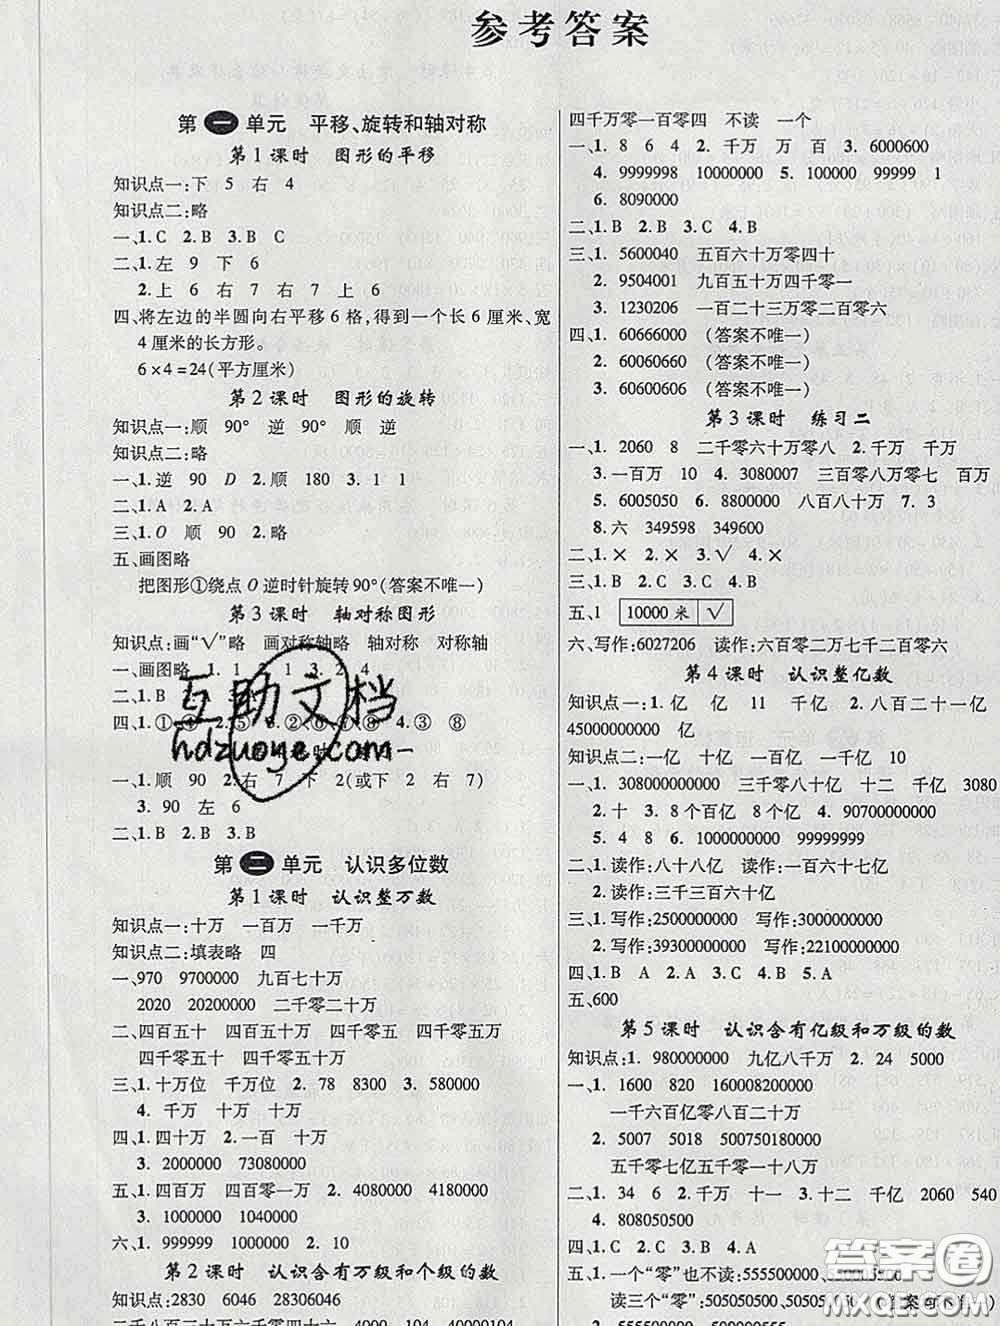 参考答案
第一单元 平移、旋转和轴对称
第1课时 图形的平移
知识点一:下 5 右 4
知识点二:略
一、1. C 2. B 3. B 4. C
二、1. 左 9 下 6
2. 上 6 右 7 右 7 上 6
四、将左边的半圆向右平移6格,得到一个长6厘米、宽
4厘米的长方形。
6×4=24(平方厘米)
第2课时 图形的旋转
知识点一:顺 90° 逆 90° 顺 逆
知识点二:略
一、1. 逆 90 D 2. 顺 180 3. 1 1
二、1. A 2. A
三、1. O 顺 90 2. 略
五、画图略
把图形①绕点O逆时针旋转90°(答案不唯一)
第3课时 轴对称图形
知识点:画“√”略 画对称轴略 轴对称 对称轴
一、画图略 1. 1 2 1 3 2 4
二、1. B
四、1. ① ④ 2. ⑤ 3. ② ⑥ ⑦ 4. ③ ⑧
一、1. 顺 90 2. 右 7 下 2(或下 2 右 7)
3. 90 左 6
二、1. B 2. B 3. B
第二单元 认识多位数
第1课时 认识整万数
知识点一:十万 一百万 一千万
知识点二:填表略 四
一、970 9700000 九百七十万
2020 20200000 二千零二十万
二、四百五十 四百五十万 四千零五 四千零五万
四千零五十 四千零五十万
三、1. 十万位 千万位 2. 78 8300 3. 580000
4. 千万 十万 十万
四、1. 四十万 2. 一百 十万
3. 2000000 73080000
五、1. 四百万 四百零一万 2. 4080000 4180000
3. 1000000 1040000
六、1. 999999 1000000 2. 10
第2课时 认识含有万级和个级的数
知识点:2830 6046 28306046
二千八百三十万六千零四十六 4004 40000104
四千万零一百零四 不读 一个
一、1. 8 6 4 2. 千万 万 百 3. 6000600
4. 9999998 10000000 5. 100000 99999 1
6. 8090000
二、1. B 2. B 3. C 4. B
三、1. 5600040 五百六十万零四十
2. 9504001 九百五十万四千零一
3. 1230206 一百二十三万零二百零六
四、1. 60666000 (答案不唯一)
2. 60060660 (答案不唯一)
3. 60600606 (答案不唯一)
第3课时 练习二
一、1. 2060 8 二千零六十万零八 2. 千万 千万
3. 一百万 10 4. 3080007 三百零八万零七 百万
5. 6005050 6. 8800000 八百八十万 7. 3
8. 六 349598 349600
二、1. × 2. × 3. √ 4. ×
三、1. B 2. B 3. C
五、1 10000米 √
六、写作:6027206 读作:六百零二万七千二百零六
第4课时 认识整亿数
知识点一:1. 亿 亿 11 千亿 2. 八百二十一亿
45000000000 亿
知识点二:一亿 十亿 一百亿 一千亿 10
一、1. 308000000000 三千零八十亿 十二 千亿 3080
2. 十 3. 8个百亿 8个亿 4. 90700000000
5. 4 8 6. 1000000000 99999999
二、1. 读作:八十八亿 读作:一百六十七亿
2. 读作:三千三百六十亿
三、1. 写作:2500000000 写作:3000000000
2. 写作:39300000000 写作:22100000000
四、1. B A 2. A 3. C 4. B
五、600
第5课时 认识含有亿级和万级的数
知识点:1. 980000000 九亿八千万 2. 24 5000
一、1. 1600 820 160008200000
一千六百亿零八百二十万
2. 5007 5018 500750180000
五千零七亿五千零一十八万
二、1. 34 6 2. 千万 十一 3. 十二 千亿 2060 540
4. 808050500
四、1. C 2. C 3. B 4. A
五、1. 一个“零”也不读:555500000、
读三个“零”:505050500、
互助文档
hdzuoye.com
答案卷